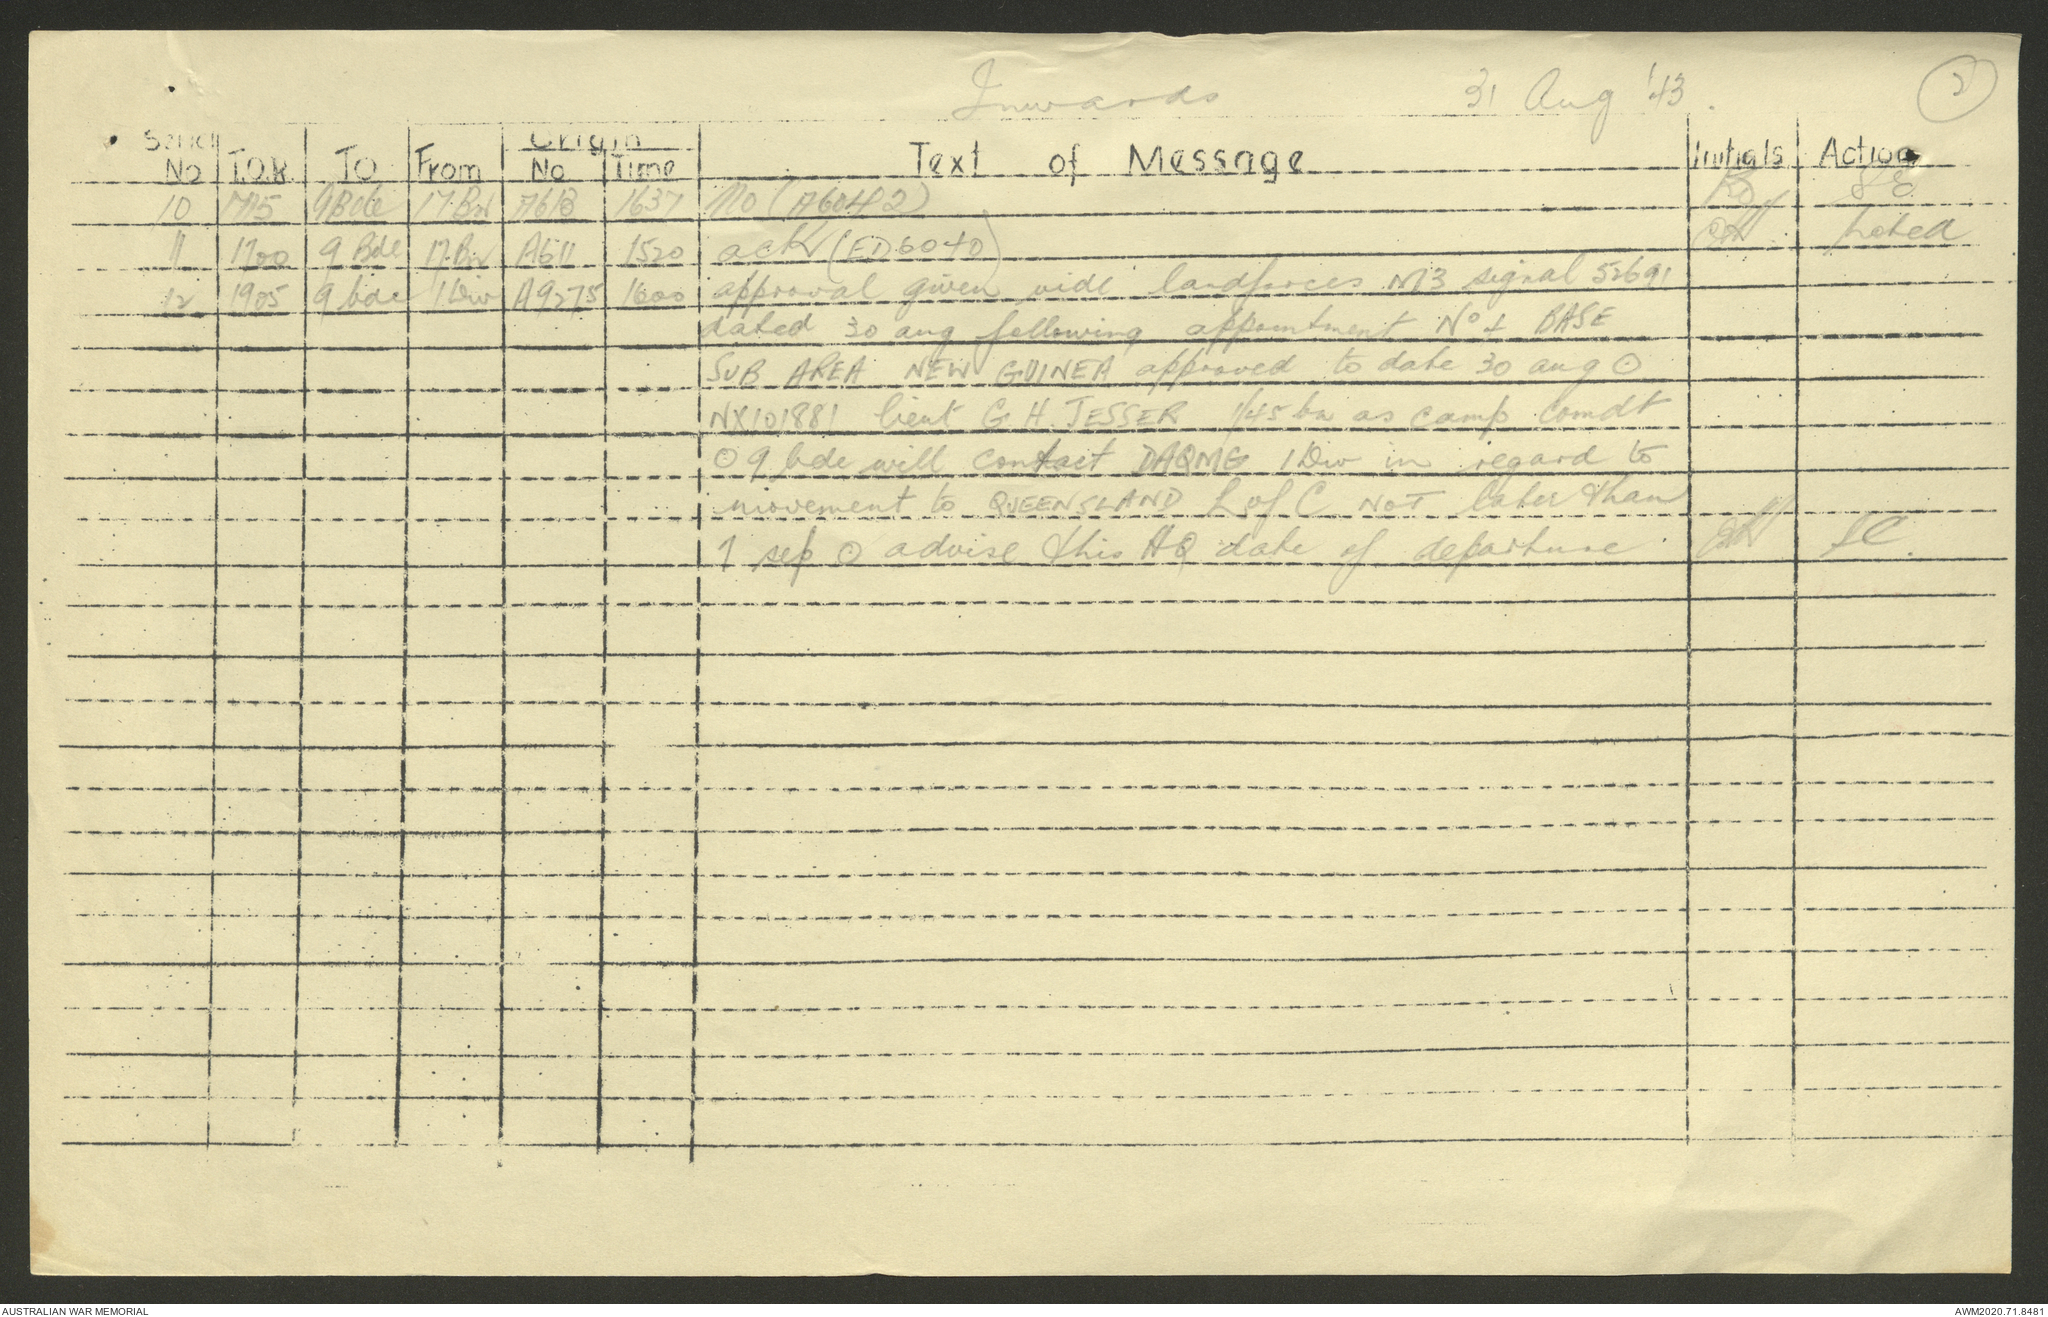 Inwards 31 Aug '43. 2
Serial No T.O.R. TO From Origin No Time Text of Message Initials Action
10 1715 9Bde 17Bn A613 1637 No (A6042)
11 1700 9 Bde 17Bn A611 1520 ack (ED6040) Noted
12 1905 9 bde 1 Div A9275 1600 approval given vide landforces M3 signal 52691
dated 30 aug following appointment No 1 BASE
SUB AREA NEW GUINEA approved to date 30 aug ⊙
NX101881 lieut G H JESSER 1/45 bn as camp comdt
⊙ 9 bde will contact DAQMG 1 Div in regard to
movement to QUEENSLAND L of C NOT later than
7 sep ⊙ advise this HQ date of departure SC.
AUSTRALIAN WAR MEMORIAL AWM2020.71.8481